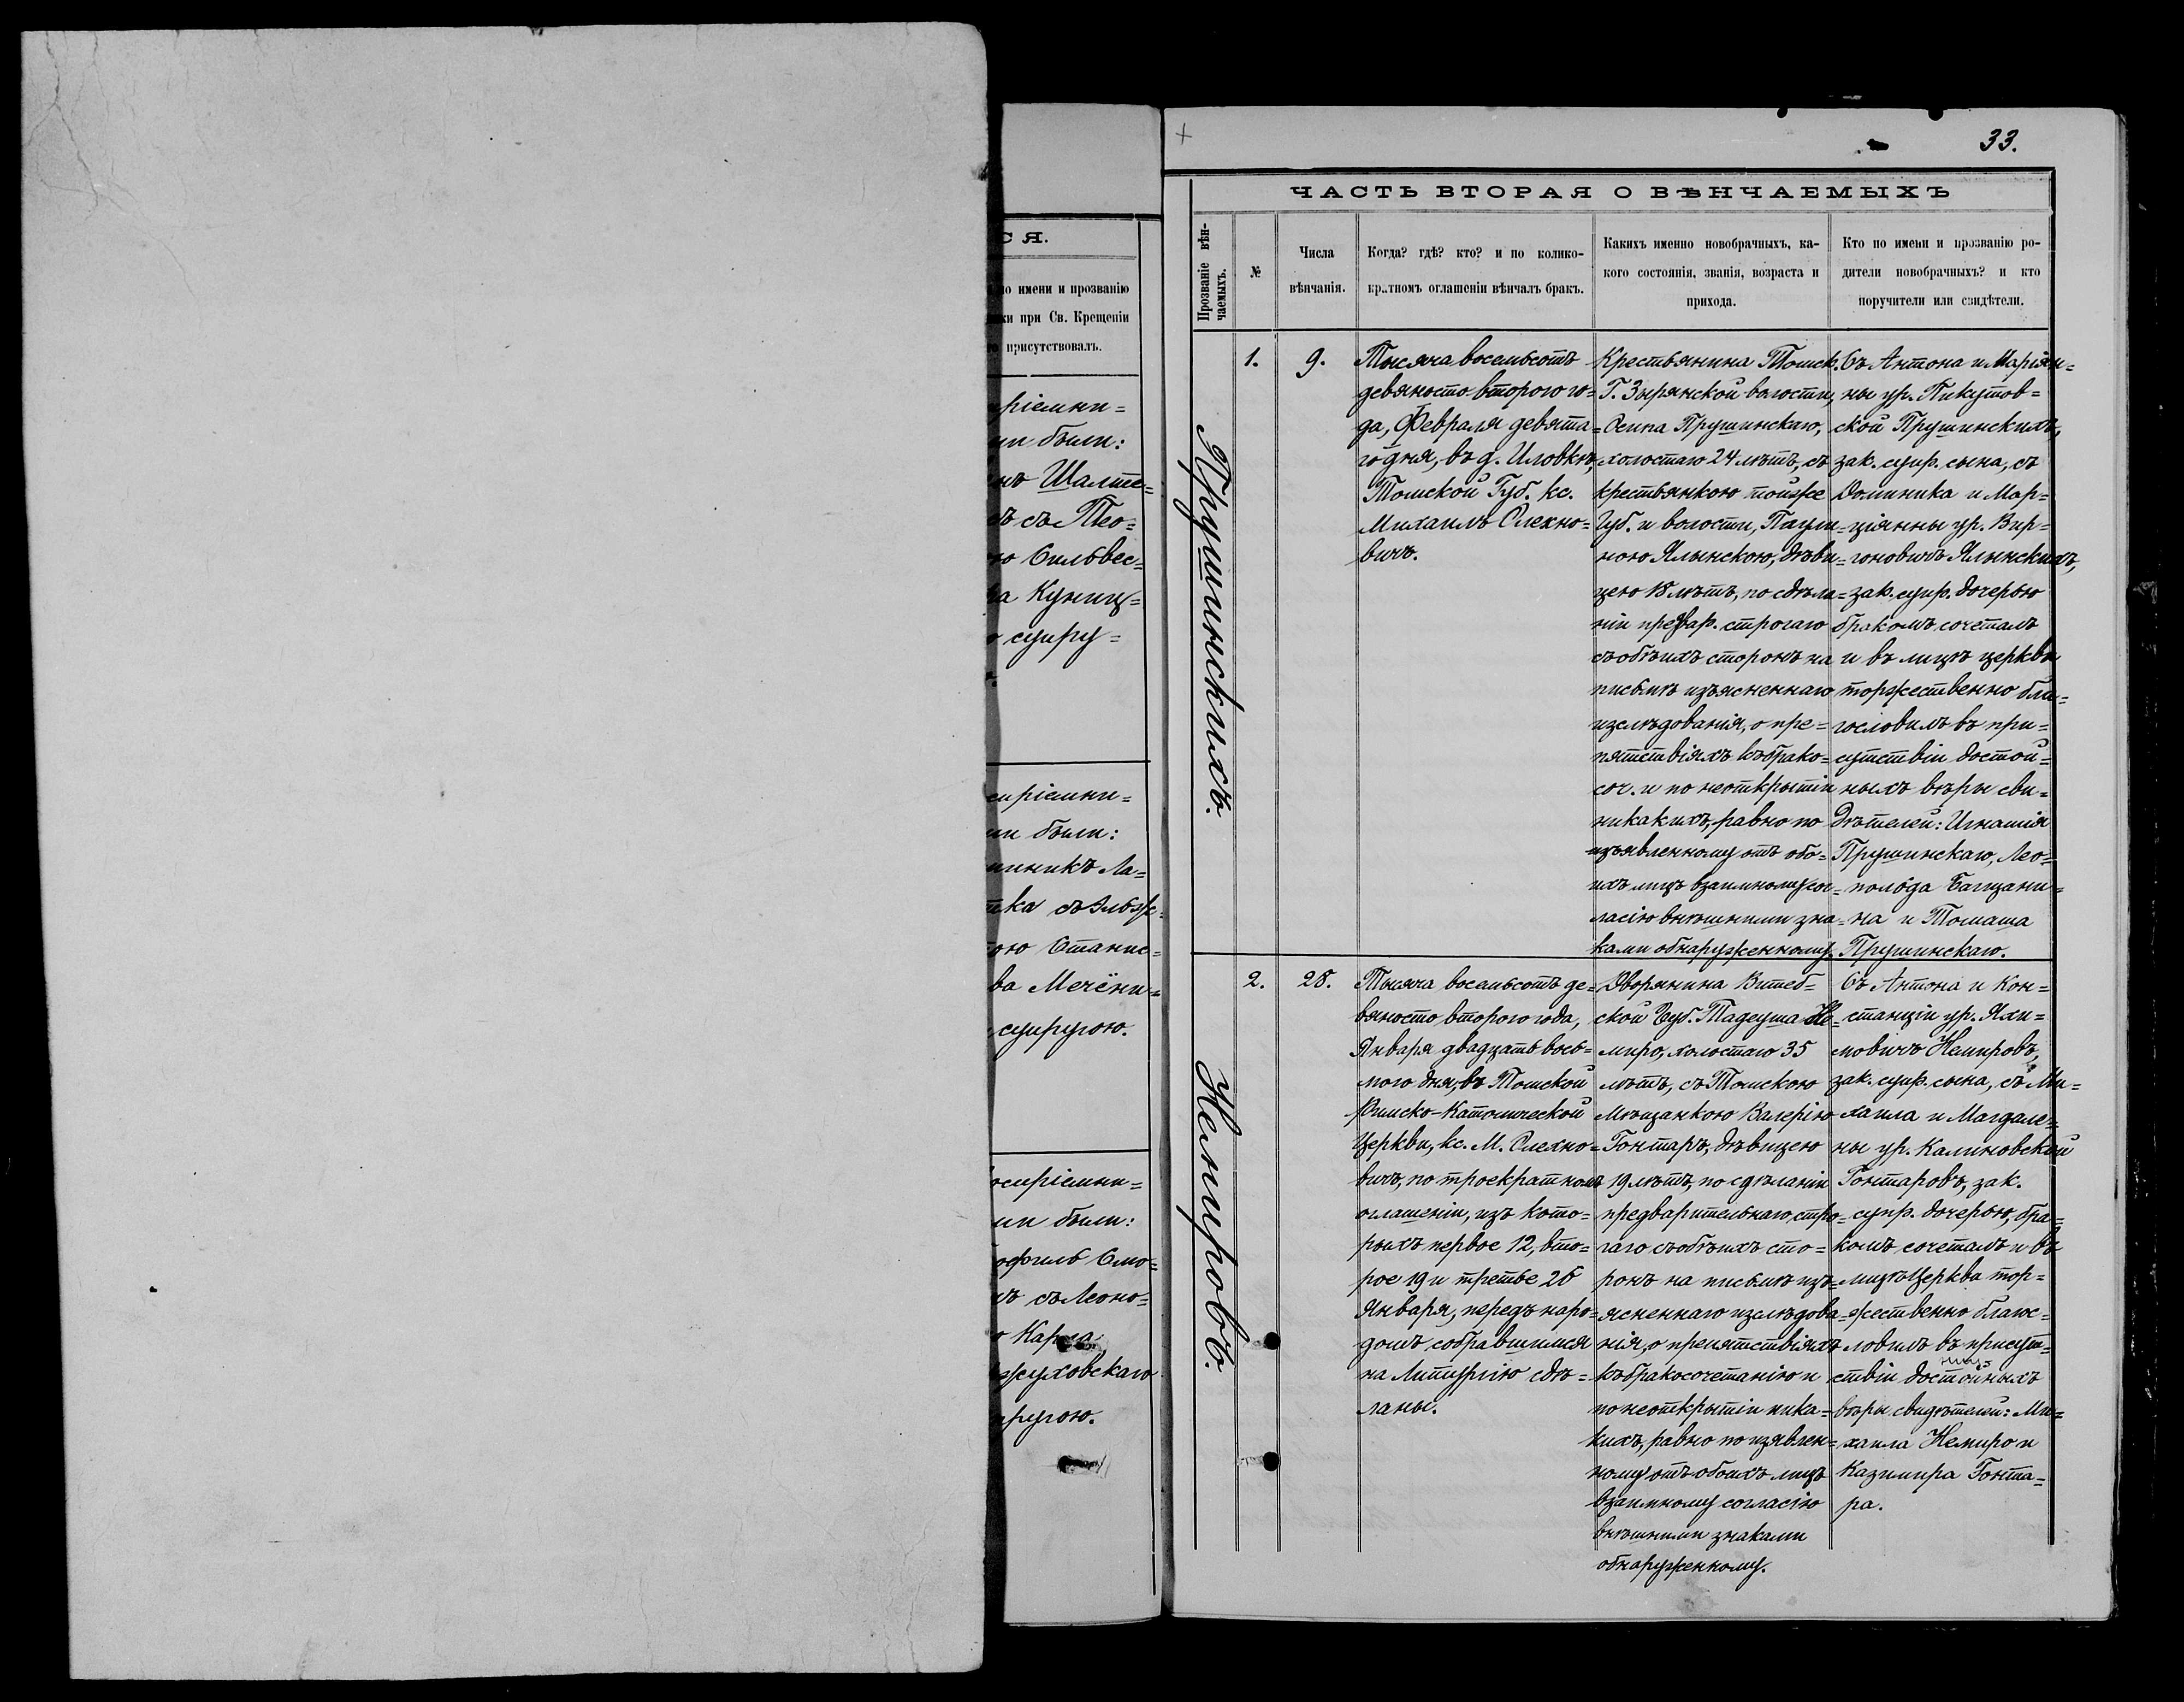 СЯ.
по имени и прозванію
при Св. Крещеніи
присутствовалъ.
ріемни=
ми были:
нъ Шалте=
съ Тео=
ю Сильвес=
ка Куниц=
супру=
емріемни=
ми были:
миникъ Ла=
тка съ Эльзбе=
ою Станис=
ва Мечёни=
супругою.
осиріемни=
ми были:
офиль Смо=
съ Леоно=
Карла
жуховскаго
пругою.
33.
ЧАСТЬ ВТОРАЯ О ВѢНЧАЕМЫХЪ
Прозваніе вѣн-
чаемыхъ.
№
Числа
вѣнчанія.
Когда? гдѣ? кто? и по колико-
кратномъ оглашеніи вѣнчалъ бракъ.
Какихъ именно новобрачныхъ, ка-
кого состоянія, званія, возраста и
прихода.
Кто по имени и прозванію ро-
дители новобрачныхъ? и кто
поручители или свидѣтели.
Прушинскихъ.
1.
9.
Тысяча восемьсотъ
девяносто второго го=
да, Февраля девята=
го дня, въ д. Иловкѣ,
Томской Губ. кс.
Михаилъ Олехно=
вичъ.
Крестьянина Томск.
Г. Зырянской волости,
Осипа Прушинскаго,
холостаго 24 лѣтъ, съ
крестьянкою тойже
Губ. и волости, Паули=
ною Ялынскою, дѣви=
цею 18 лѣтъ, по сдѣла=
ніи предвар. строгаго
съ обѣихъ сторонъ на
письмѣ изъясненнаго
изслѣдованія, о пре=
пятствіяхъ къ брако=
соч. и по неоткрытіи
никакихъ, равно по
изъявленному отъ обо=
ихъ лицъ взаимному сог=
ласію внѣшними зна=
ками обнаруженному.
Съ Антона и Маріян=
ны ур. Пикутов=
ской Прушинскихъ,
зак. супр. сына, съ
Доминика и Мар=
ціянны ур. Вир=
гоновичъ Ялынскихъ,
зак. супр. дочерью
бракомъ сочеталъ
и въ лицѣ церкви
торжественно бла=
гословилъ въ при=
сутствіи достой=
ныхъ вѣры сви=
дѣтелей: Игнатія
Прушинскаго, Лео=
польда Багцани=
на и Томаша
Прушинскаго.
Немировъ.
2.
28.
Тысяча восемьсотъ де=
вяносто второго года,
Января двадцать вось=
мого дня, въ Томской
Римско-Католической
Церкви, кс. М. Олехно=
вичъ, по троекратномъ
оглашеніи, изъ кото=
рыхъ первое 12, вто=
рое 19 и третье 26
Января, передъ наро=
домъ собравшимся
на Литургію сдѣ=
ланы.
Дворянина Витеб=
ской Губ. Тадеуша Не=
миро, холостаго 35
лѣтъ, съ Томскою
мѣщанкою Валеріею
Гонтаръ, дѣвицею
19 лѣтъ, по сдѣланіи
предварительнаго, стро=
гаго съ обѣихъ сто=
ронъ на письмѣ изъ=
ясненнаго изслѣдова=
нія, о препятствіяхъ
къ бракосочетанію и
по неоткрытіи ника=
кихъ, равно по изявлен=
ному отъ обоихъ лицъ
взаимному согласію
внѣшними знаками
обнаруженному.
Съ Антона и Кон=
станціи ур. Яхи=
мовичъ Немировъ,
зак. супр. сына, съ Ми=
хаила и Магдале=
ны ур. Калиновской
Гонтаровъ, зак.
супр. дочерью, бра=
комъ сочеталъ и въ
лицѣ Церкви тор=
жественно благос=
ловилъ въ присут=
ствіи достойныхъ
вѣры свидѣтелей: Ми=
хаила Немиро и
Казимира Гонта=
ра.